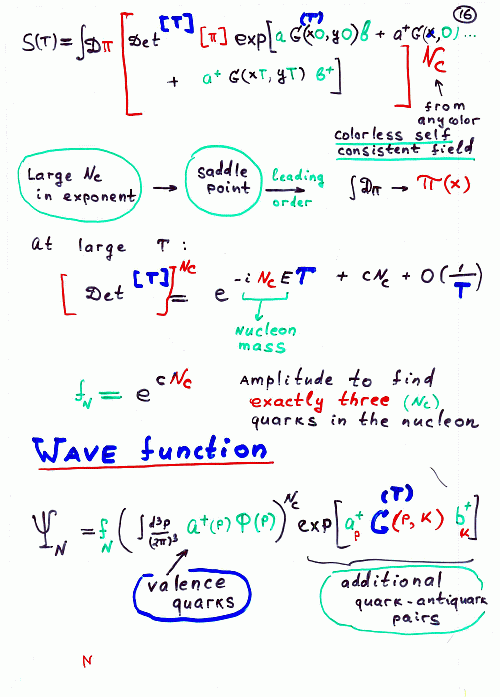 16
S(T) = ∫Dπ [Det^[T] [π] exp[a G^(T)(x0, y0) b + a⁺ G(x, 0) ...
+ a⁺ G(xT, yT) b⁺] ] Nc
from any color
colorless self consistent field
Large Nc in exponent → saddle point → leading order ∫Dπ → π(x)
at large T :
[Det^[T]]^Nc = e^(-i Nc E T + c Nc + O(1/T))
Nucleon mass
f_N = e^(c Nc) Amplitude to find
exactly three (Nc)
quarks in the nucleon
WAVE function
Ψ_N = f_N (∫ d³p/(2π)³ a⁺(p) Φ(p))^Nc exp[a⁺_p G^(T)(p, k) b⁺_k]
valence quarks
additional
quark-antiquark
pairs
N